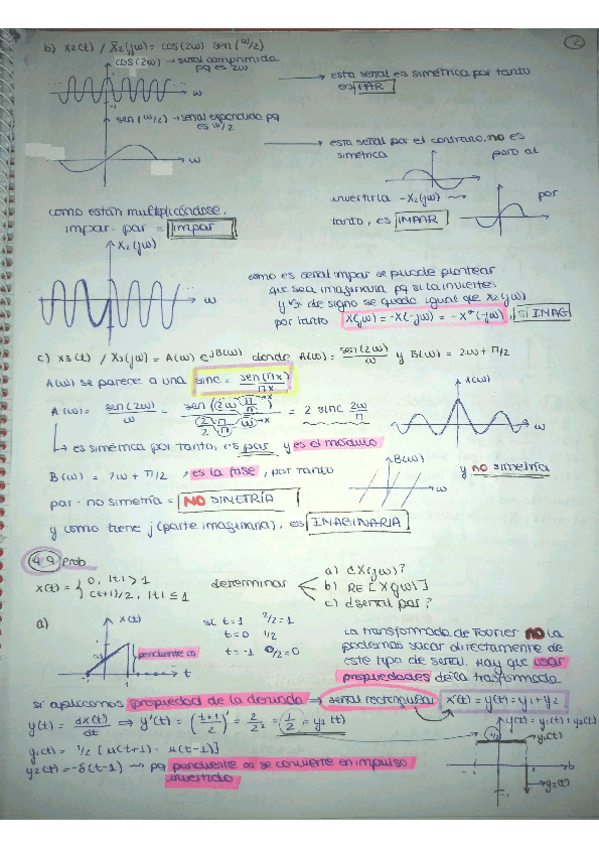 2
b) x2(t) / X2(jω) = cos(2ω) sen(ω/2)
cos(2ω) → señal comprimida
pq es 2ω
→ esta señal es simétrica por tanto
es PAR
ω
sen(ω/2) → señal expandida pq
es ω/2
→ esta señal por el contrario, no es
simétrica
pero al
ω
invertirla -X2(jω)
por
tanto, es IMPAR
como están multiplicándose,
impar · par = impar
X2(jω)
ω
como es señal impar se puede plantear
que sea imaginaria pq si la inviertes
de signo se queda igual que X2(jω)
por tanto X(jω) = -X(-jω) = -X*(-jω), SI IMAG
c) x3(t) / X3(jω) = A(ω) e^jB(ω) donde A(ω) = sen(2ω)/ω y B(ω) = 2ω + π/2
A(ω) se parece a una sinc = sen(πx)/πx
A(ω)
A(ω) = sen(2ω)/ω = = 2 sinc 2ω/π
ω
↳ es simétrica por tanto, es par y es el módulo
B(ω) = 2ω + π/2, es la fase, por tanto
B(ω)
ω
y no simetría
par · no simetría = NO SIMETRÍA
y como tiene j (parte imaginaria), es IMAGINARIA
4.9 Prob
x(t) = { 0, |t| > 1
(t+1)/2, |t| ≤ 1
determinar
a) ¿X(jω)?
b) RE [X(jω)]
c) ¿señal par?
a)
x(t)
pendiente ∞
t
si t=1 2/2=1
t=0 1/2
t=-1 0/2=0
La transformada de Fourier NO la
podemos sacar directamente de
este tipo de señal. Hay que usar
propiedades de la transformada
si aplicamos propiedad de la derivada ⇒ señal rectangular x'(t) = y(t) = y1 + y2
y(t) = dx(t)/dt ⇒ y'(t) = (t+1/2)' = 2/2² = 1/2 = y1(t)
y(t) = y1(t) + y2(t)
y1(t)
y1(t) = 1/2 [μ(t+1) - μ(t-1)]
y2(t) = -δ(t-1) → pq pendiente ∞ se convierte en impulso
invertido
t
y2(t)